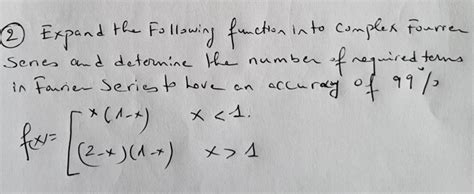 ② Expand the Following function into Complex Fourier
Series and determine the number of required terms
in Fourier Series to have an accuracy of 99%
x(1-x) x < 1.
f(x)=
(2-x)(1-x) x > 1